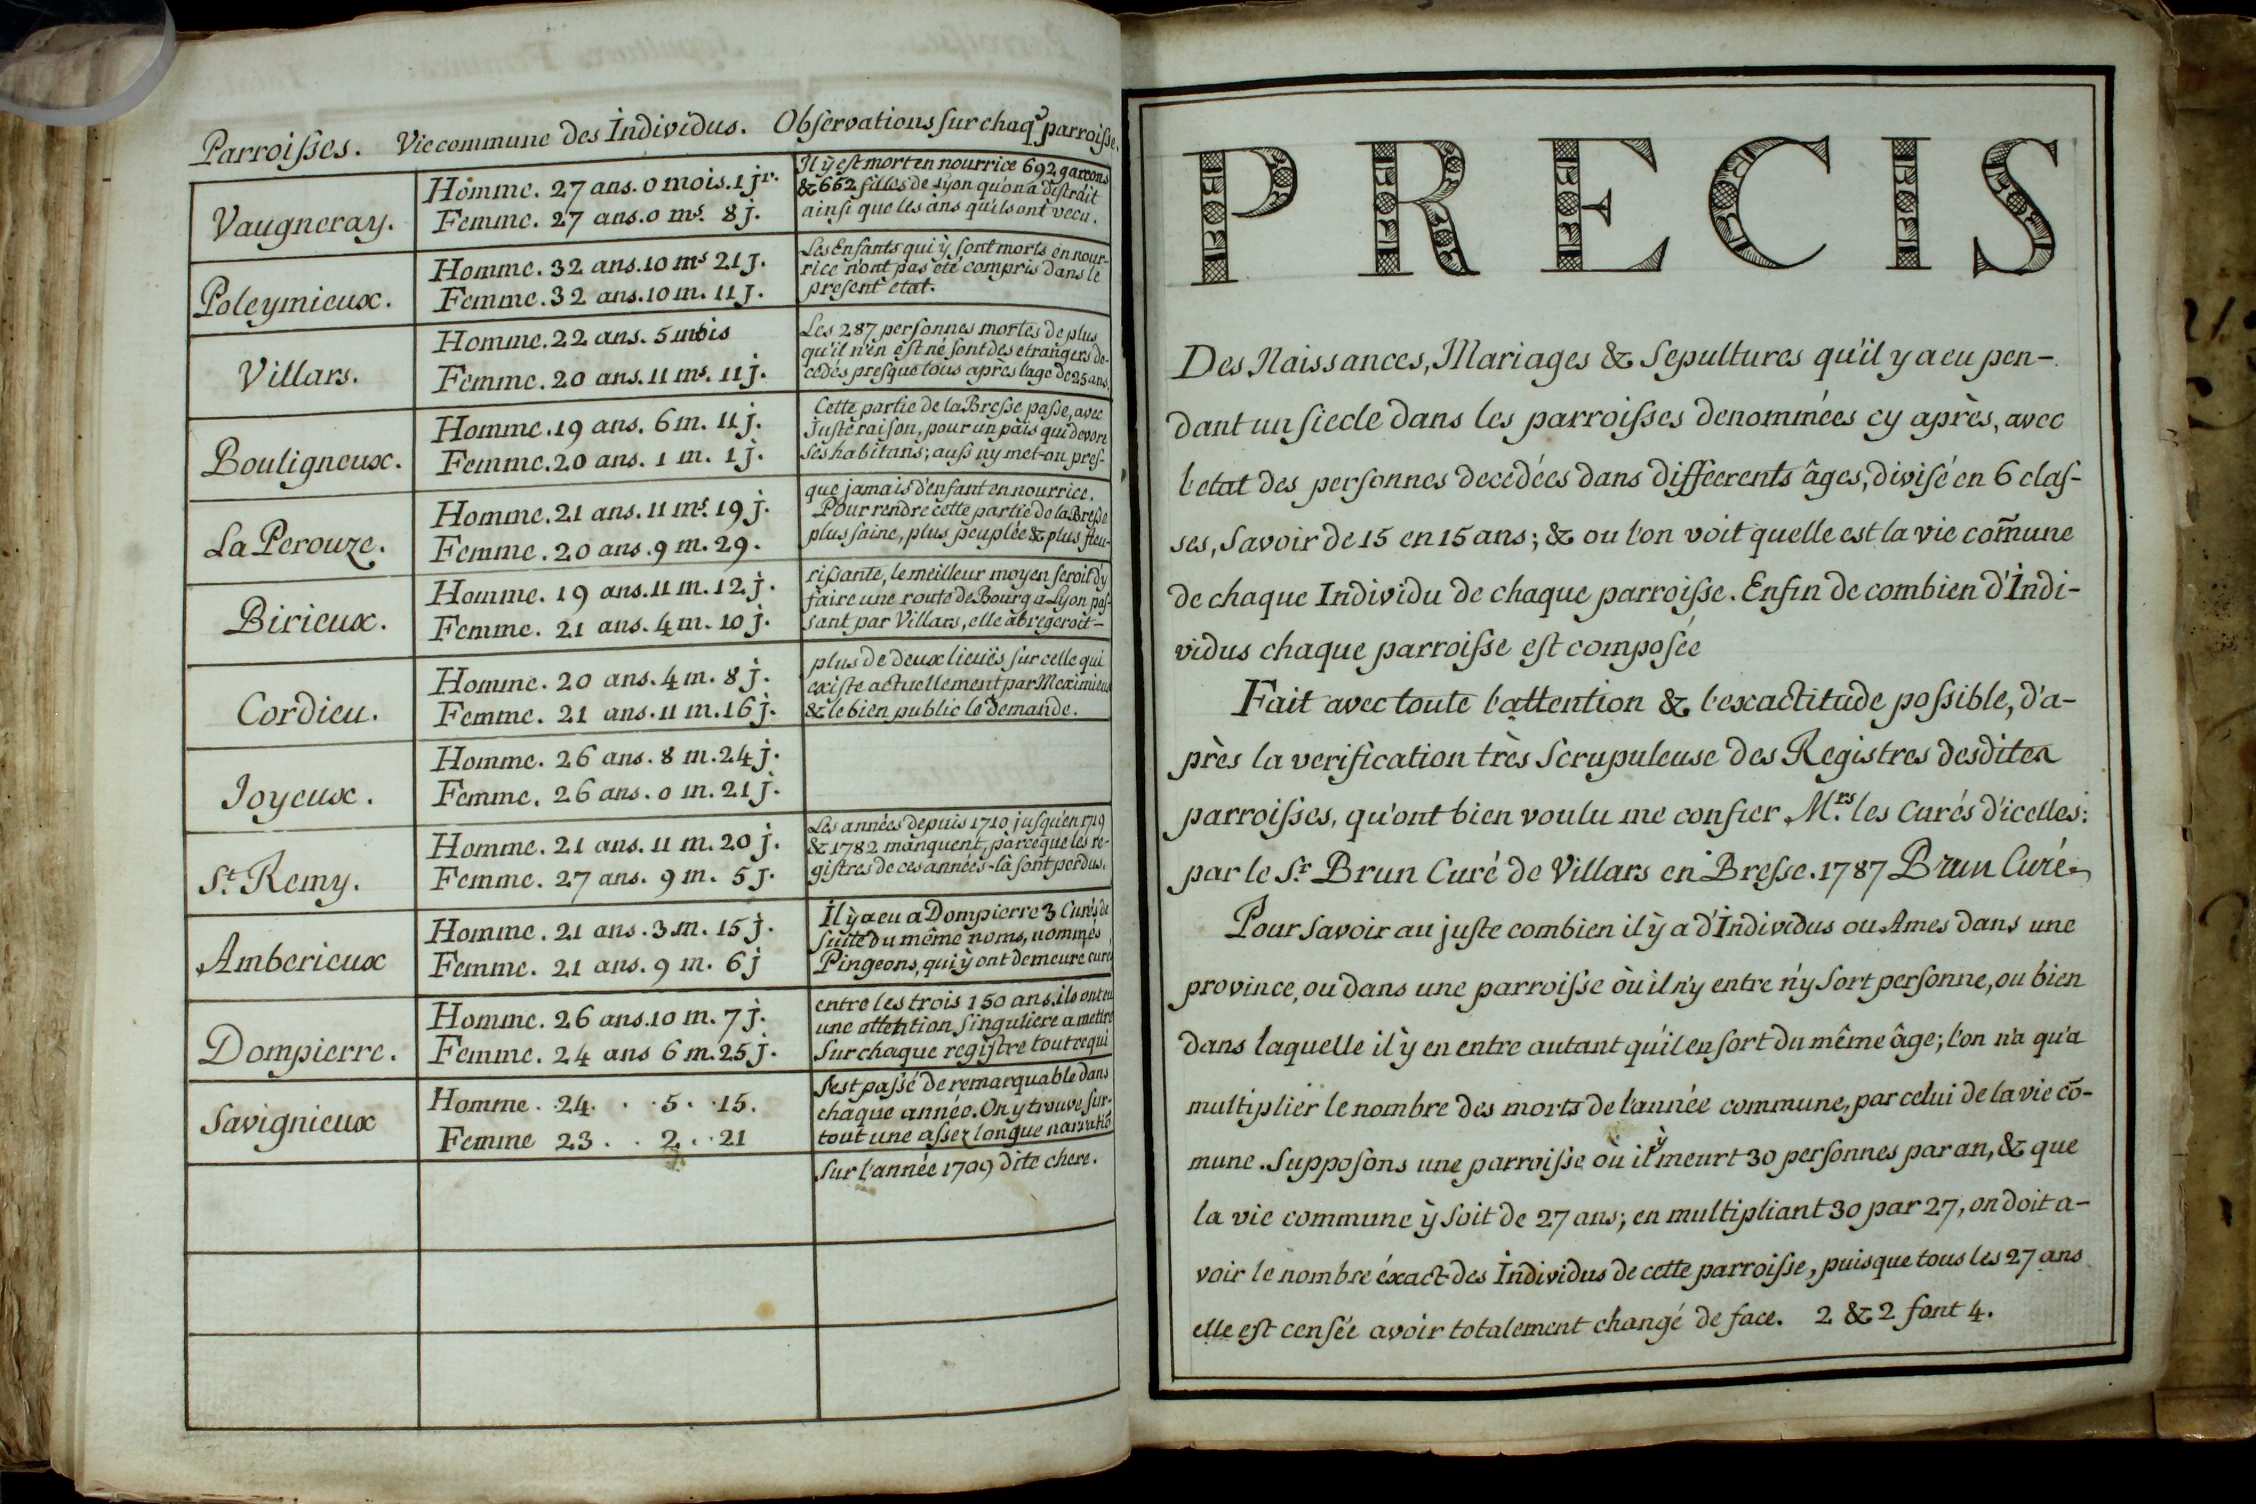 Parroisses. Vie commune des Individus. Observations sur chaq.e parroisse.
Vaugneray.
Homme. 27 ans. 0 mois. 1 jr.
Femme. 27 ans. 0 ms. 8 j.
Il ÿ est mort en nourrice 692 garcons
& 662 filles de Lyon qu'on a distrait
ainsi que les ans qu'ils ont vecu.
Poleymieux.
Homme. 32 ans. 10 ms 21 j.
Femme. 32 ans. 10 m. 11 j.
Les Enfants qui ÿ sont morts en nour-
rice n'ont pas été compris dans le
present etat.
Villars.
Homme. 22 ans. 5 mois
Femme. 20 ans. 11 ms. 11 j.
Les 287 personnes mortes de plus
qu'il n'en est né sont des etrangers de-
cedés presque tous après l'age de 25 ans.
Bouligneux.
Homme. 19 ans. 6 m. 11 j.
Femme. 20 ans. 1 m. 1 j.
Cette partie de la Bresse passe, avec
Juste raison, pour un païs qui devore
ses habitans; aussi n'y met-on pres-
La Perouze.
Homme. 21 ans. 11 ms. 19 j.
Femme. 20 ans. 9 m. 29.
que jamais d'enfant en nourrice.
Pour rendre cette partie de la Bresse
plus saine, plus peuplée & plus fleu-
Birieux.
Homme. 19 ans. 11 m. 12 j.
Femme. 21 ans. 4 m. 10 j.
rissante, le meilleur moyen seroit d'y
faire une route de Bourg a Lyon pas-
sant par Villars, elle abregeroit-
Cordieu.
Homme. 20 ans. 4 m. 8 j.
Femme. 21 ans. 11 m. 16 j.
plus de deux lieuës sur celle qui
existe actuellement par Meximieux
& le bien public le demande.
Joyeux.
Homme. 26 ans. 8 m. 24 j.
Femme. 26 ans. 0 m. 21 j.
St. Remy.
Homme. 21 ans. 11 m. 20 j.
Femme. 27 ans. 9 m. 5 j.
Les années depuis 1710 jusqu'en 1719
& 1782 manquent, parceque les re-
gistres de ces années-là sont perdus.
Amberieux
Homme. 21 ans. 3 m. 15 j.
Femme. 21 ans. 9 m. 6 j
Il ÿ a eu a Dompierre 3 Curés de
suitte du même noms, nommés
Pingeons, qui ÿ ont demeuré curé
Dompierre.
Homme. 26 ans. 10 m. 7 j.
Femme. 24 ans 6 m. 25 j.
entre les trois 150 ans. ils ont eu
une attention singuliere a mettre
sur chaque registre tout ce qui
Savignieux
Homme. . 24. . . 5. . 15.
Femme 23. . 2. . 21
s'est passé de remarquable dans
chaque année. On y trouve sur-
tout une assez longue narratiō
sur l'année 1709 dite chere.
PRECIS
Des Naissances, Mariages & Sepultures qu'il y a eu pen-
dant un siecle dans les parroisses denommées cy après, avec
l'etat des personnes decédées dans differents âges, divisé en 6 clas-
ses, Savoir de 15 en 15 ans; & ou l'on voit quelle est la vie com̄une
de chaque Individu de chaque parroisse. Enfin de combien d'Indi-
vidus chaque parroisse est composée
Fait avec toute l'attention & l'exactitude possible, d'a-
près la verification très Scrupuleuse des Registres desdites
parroisses, qu'ont bien voulu me confier M.rs les Curés d'icelles:
par le Sr. Brun Curé de Villars en Bresse. 1787 Brun Curé
Pour Savoir au juste combien il ÿ a d'Individus ou Ames dans une
province, ou dans une parroisse où il n'y entre n'y Sort personne, ou bien
dans laquelle il ÿ en entre autant qu'il en sort du même âge; l'on n'a qu'a
multiplier le nombre des morts de l'année commune, par celui de la vie cō-
mune. Supposons une parroisse où il ÿ meurt 30 personnes par an, & que
la vie commune ÿ Soit de 27 ans; en multipliant 30 par 27, on doit a-
voir le nombre éxact des Individus de cette parroisse, puisque tous les 27 ans
elle est censée avoir totalement changé de face. 2 & 2 font 4.